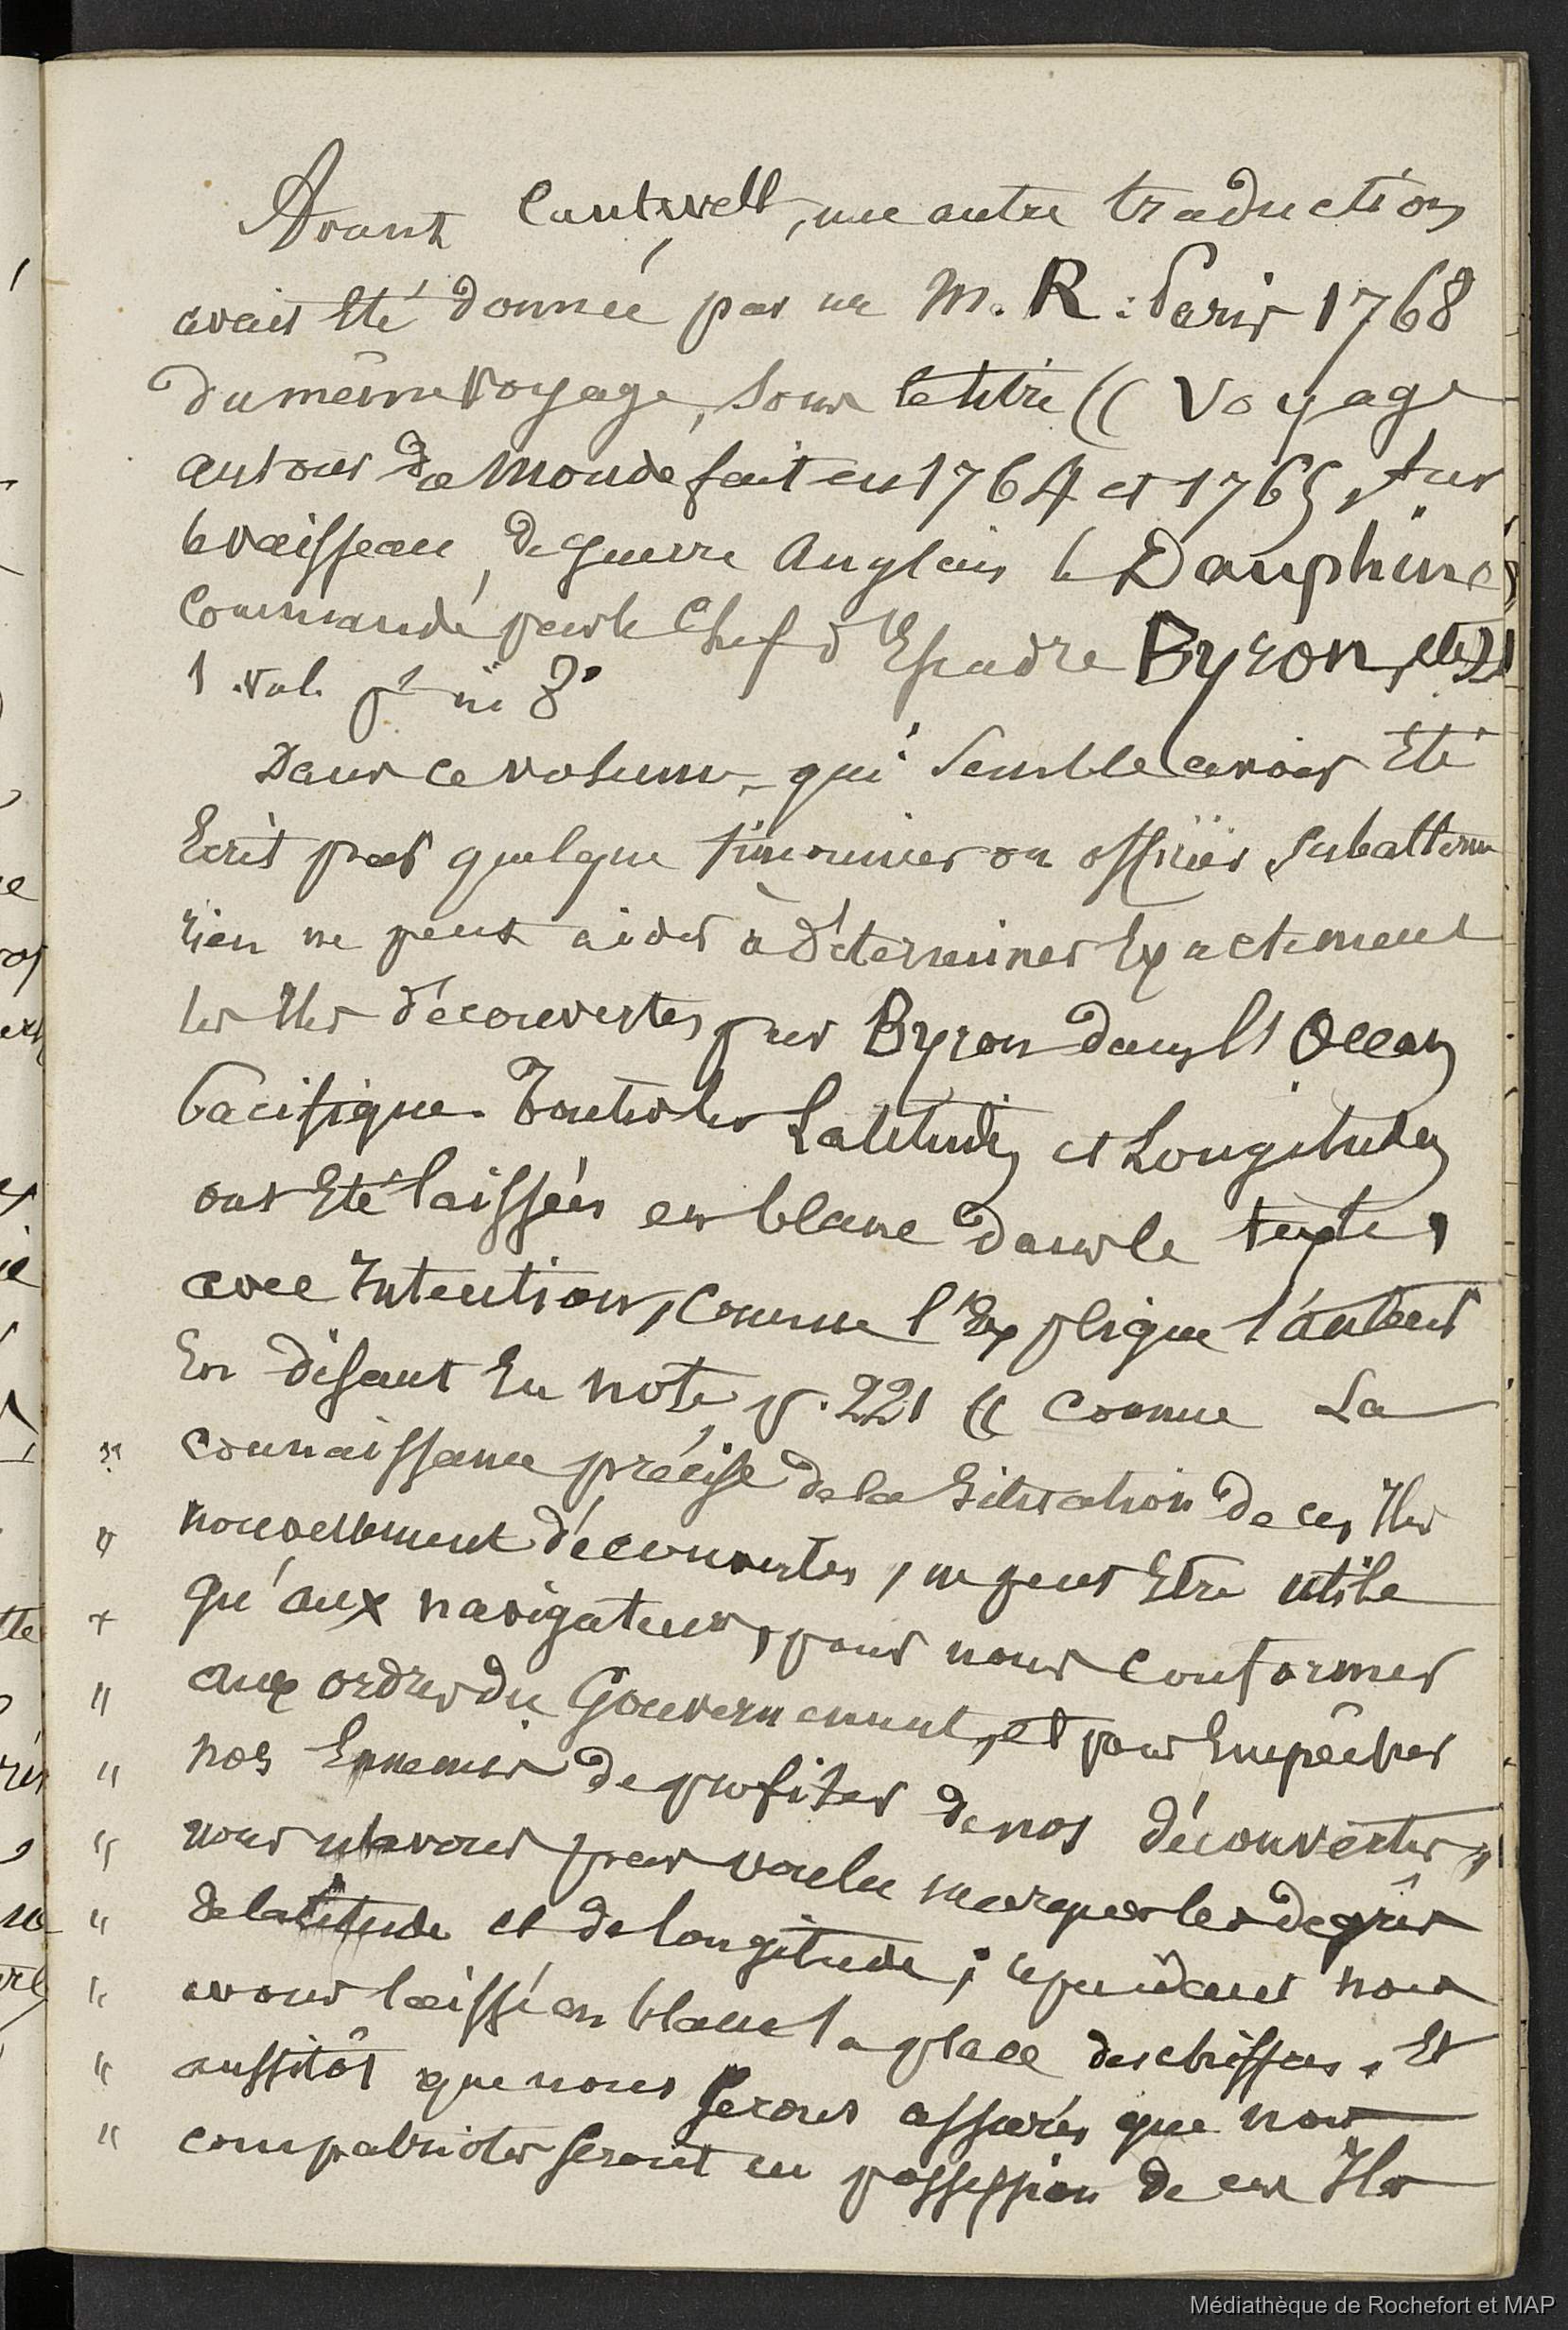 Avant Cantwell, une autre traduction
avait Eté donnée par un M. R : Paris 1768
du même Voyage, sous le titre (( Voyage
autour du Monde fait en 1764 et 1765, sur
le vaisseau de guerre Anglais le Dauphin,
Commandé par le Chef d'Escadre Byron, etc ))
1 vol. pt in 8°
Dans ce volume, qui semble avoir Eté
Ecrit par quelque timonnier ou officier subalterne
rien ne peut aider à Déterminer Exactement
les Iles découvertes par Byron dans l'Océan
Pacifique. Toutes les Latitudes et Longitudes
ont Eté laissées en blanc dans le texte,
avec Intention, comme l'Explique l'auteur
En disant En note p. 221 (( Comme La
" connaissance précise de la Situation de ces Iles
" nouvellement découvertes, ne peut Etre utile
" qu'aux navigateurs, pour nous conformer
" aux ordres du Gouvernement, et pour Empêcher
" nos Ennemis de profiter de nos découvertes,
" nous n'avons pas voulu marquer les degrés
" de latitude et de longitude ; cependant nous
" avons laissé en blanc la place des chiffres. Et
" aussitôt que nous serons assurés que nos
" compatriotes seront en possession de ces Iles
Médiathèque de Rochefort et MAP